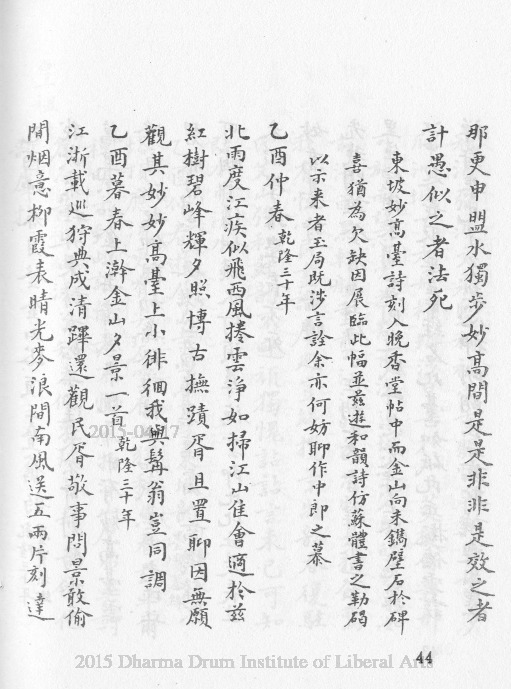 那更申盟水獨步妙高問是是非非是效之者
計愚似之者法死
東坡妙高臺詩刻入晚香堂帖中而金山向未鐫壁石於碑
喜猶為欠缺因展臨此幅並茲遊和韻詩仿蘇體書之勒碣
以示來者玉局既涉言詮余亦何妨聊作中郎之慕
乙酉仲春 乾隆三十年
北雨度江疾似飛西風捲雲淨如掃江山佳會適於茲
紅樹碧峰輝夕照博古撫蹟胥且置聊因無願
觀其妙妙高臺上小徘徊我與髯翁豈同調
乙酉暮春上澣金山夕景一首 乾隆三十年
江浙載巡狩典成清蹕還觀民胥敬事問景敢偷
閒烟意柳霞表晴光麥浪間南風送五兩片刻達
44
2015-04-17
2015 Dharma Drum Institute of Liberal Arts